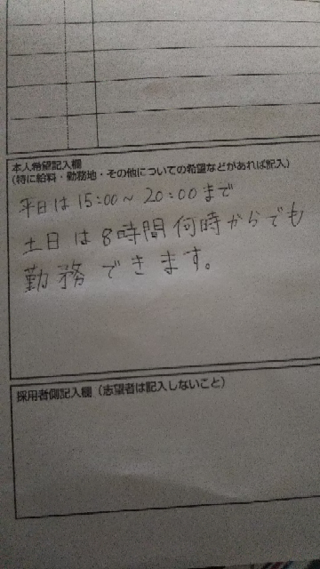 本人希望記入欄
(特に給料・勤務地・その他についての希望などがあれば記入)
平日は15:00~20:00まで
土日は8時間何時からでも
勤務できます。
採用者側記入欄(志望者は記入しないこと)